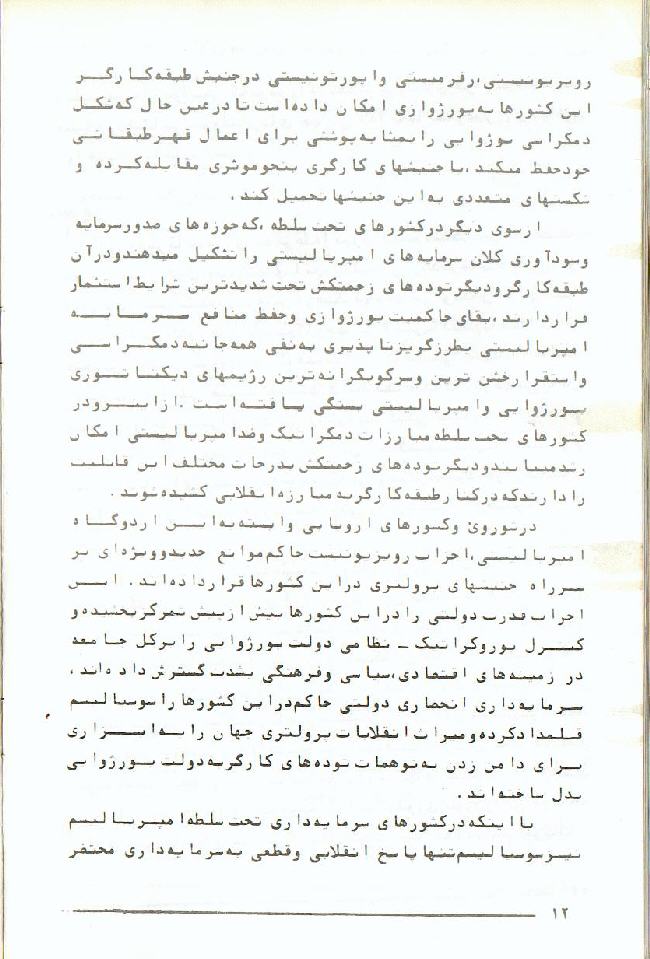 رویزیونیستی،رفرمیستی واپورتونیستی درجنبش طبقه‌کارگر
این کشورها به‌بورژوازی امکان داده‌است تادرعین حال که‌شکل
دمکراسی بورژوایی رابمثابه‌پوششی برای اعمال قهرطبقاتی
خودحفظ میکند،باجنبشهای کارگری بنحوموثری مقابله‌کرده و
شکستهای متعددی به‌این جنبشهاتحمیل کند.
ازسوی دیگردرکشورهای تحت سلطه،که‌حوزه‌های صدورسرمایه
وسودآوری کلان سرمایه‌های امپریالیستی راتشکیل میدهندودرآن
طبقه‌کارگرودیگرتوده‌های زحمتکش تحت شدیدترین شرایط استثمار
قراردارند،بقای حاکمیت بورژوازی وحفظ منافع سرمایه
امپریالیستی بطرزگریزناپذیری به‌نفی همه‌جانبه‌دمکراسی
واستقراررخشن ترین وسرکوبگرانه‌ترین رژیمهای دیکتاتوری
بورژوایی وامپریالیستی بستگی یافته‌است .ازاینرودر
کشورهای تحت سلطه‌مبارزات دمکراتیک وضدامپریالیستی امکان
رشدمییابدودیگرتوده‌های زحمتکش بدرجات مختلف این قابلیت
رادارندکه‌درکنارطبقه‌کارگربه‌مبارزه‌انقلابی کشیده‌شوند.
درشوروی وکشورهای اروپایی وابسته‌به‌این اردوگاه
امپریالیستی،احزاب رویزیونیست حاکم‌موانع جدیدوویژه‌ای بر
سرراه جنبشهای پرولتری دراین کشورهاقرارداده‌اند. این
احزاب قدرت دولتی رادراین کشورهابیش ازپیش تمرکزبخشیده‌و
کنترل بوروکراتیک - نظامی دولت بورژوایی رابرکل جامعه
در زمینه‌های اقتصادی،سیاسی وفرهنگی بشدت گسترش داده‌اند،
سرمایه‌داری انحصاری دولتی حاکم‌دراین کشورهاراسوسیالیسم
قلمدادکرده‌ومیراث انقلابات پرولتری جهان رابه‌ابزاری
برای دامن زدن به‌توهمات توده‌های کارگربه‌دولت بورژوایی
بدل ساخته‌اند.
بااینکه‌درکشورهای سرمایه‌داری تحت سلطه‌امپریالیسم
نیزسوسیالیسم‌تنهاپاسخ انقلابی وقطعی به‌سرمایه‌داری محتضر
۱۲